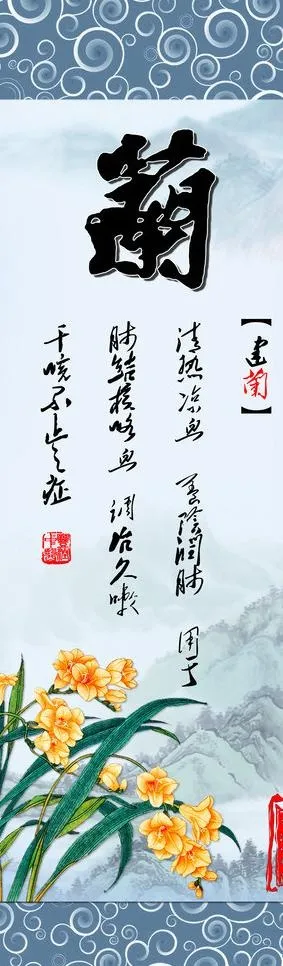 蘭
【建蘭】
清热凉血 養陰润肺 用于
肺结核咯血 调治久嗽
干咳不止之症